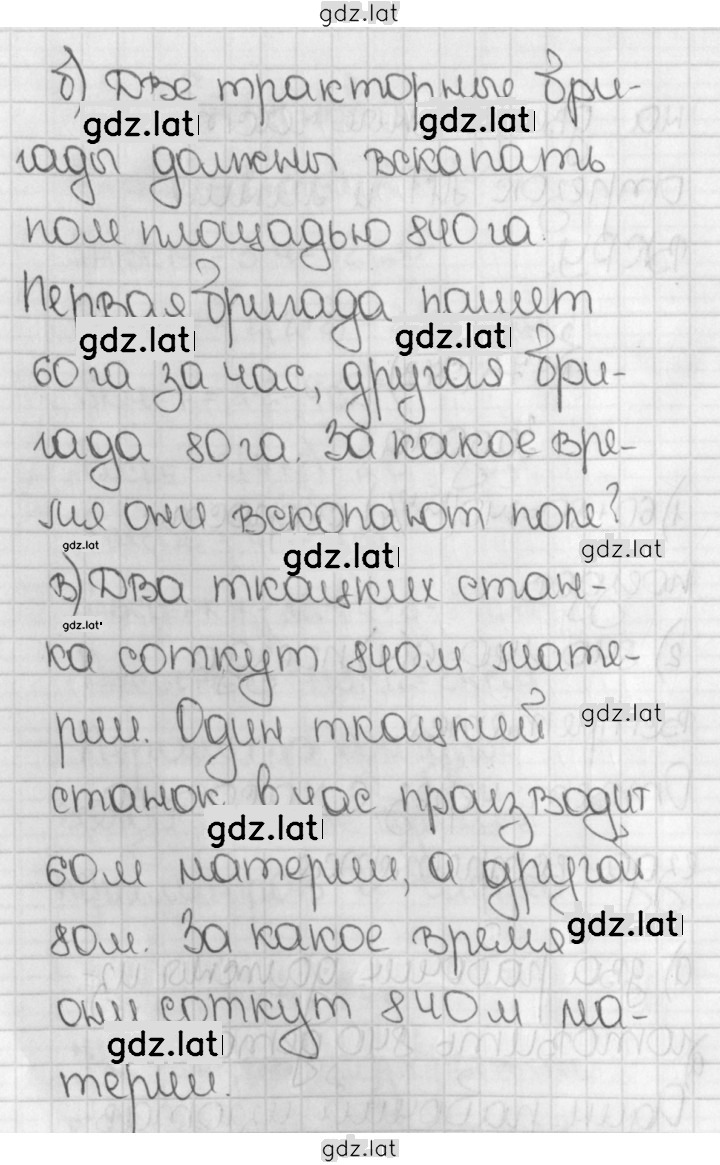 gdz.lat
б) Две тракторные бри-
gdz.lat gdz.lat
гады должны вскапать
поле площадью 840 га.
Первая бригада пашет
gdz.lat gdz.lat
60 га за час, другая бри-
гада 80 га. За какое вре-
мя они вскопают поле?
gdz.lat gdz.lat gdz.lat
в) Два ткацких стан-
gdz.lat
ка соткут 840 м мате-
рии. Один ткацкий gdz.lat
станок в час производит
gdz.lat
60 м материи, а другой
80 м. За какое время gdz.lat
они соткут 840 м ма-
gdz.lat
терии.
gdz.lat